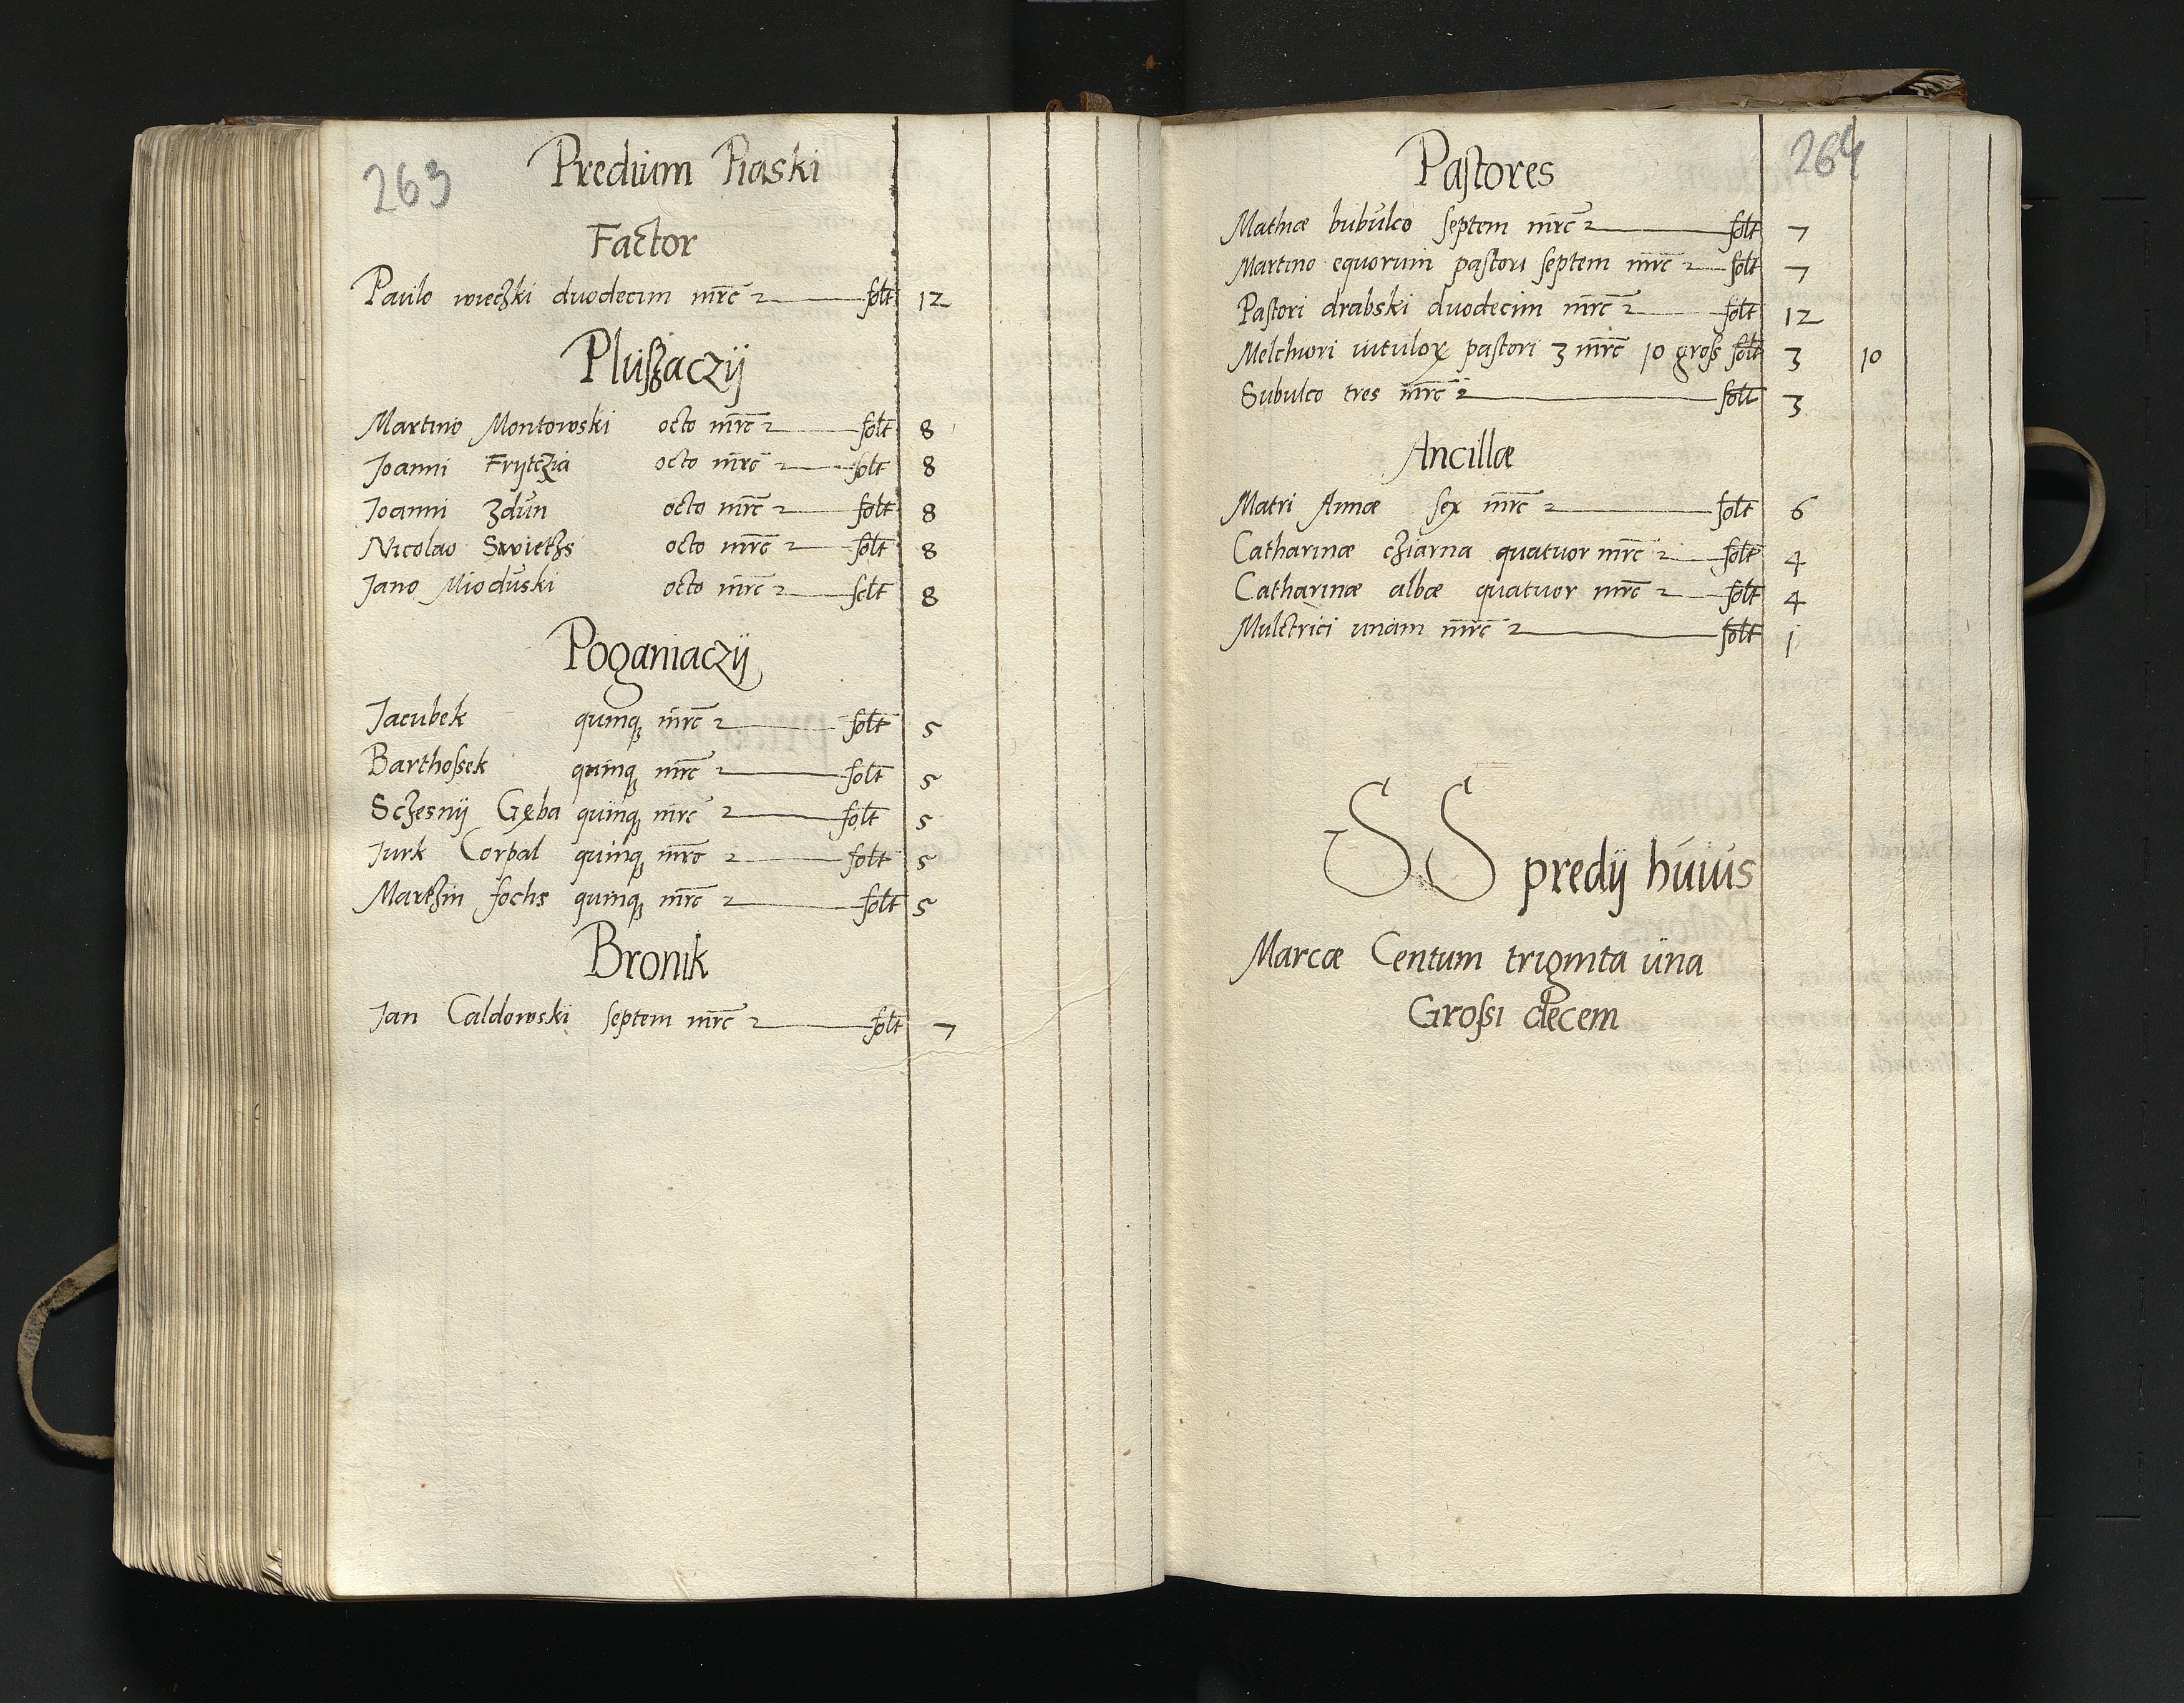 263
Predium Piaski
Factor
Paulo wieczki duodecim mrc solt 12
Pluszaczÿ
Martino Montowski octo mrc solt 8
Joanni Frÿtczia octo mrc solt 8
Joanni Zdun octo mrc solt 8
Nicolao Swietzs octo mrc solt 8
Jano Mioduski octo mrc solt 8
Poganiaczÿ
Jacubek quinq mrc solt 5
Barthossek quinq mrc solt 5
Sczesnÿ Gęba quinq mrc solt 5
Jurk Corpal quinq mrc solt 5
Martzin fochs quinq mrc solt 5
Bronik
Jan Caldowski septem mrc solt 7
264
Pastores
Mathiæ bubulco septem mrc solt 7
Martino equorum pastori septem mrc solt 7
Pastori drabski duodecim mrc solt 12
Melchiori vitulorꝝ pastori 3 mrc 10 gross solt 3 10
Subulco tres mrc solt 3
Ancillæ
Matri Annæ sex mrc solt 6
Catharinæ cziarna quatuor mrc solt 4
Catharinæ albæ quatuor mrc solt 4
Mulctrici unam mrc solt 1
SS predÿ huius
Marcæ Centum triginta una
Grossi decem